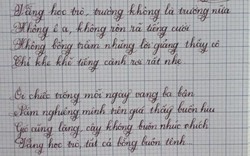 Vắng học trò, trường không là trường nữa
Không ê a, không rộn rã tiếng cười
Không bổng trầm những lời giảng thầy cô
Chỉ khe khẽ tiếng cành rơi rất nhẹ
Ốc chốc trống mỗi ngày vang ba bận
Nằm nghiêng mình trên giá thấy buồn hiu
Gió cũng lặng, cây không buồn nhúc nhích
Vắng học trò, tất cả bỗng buồn tênh